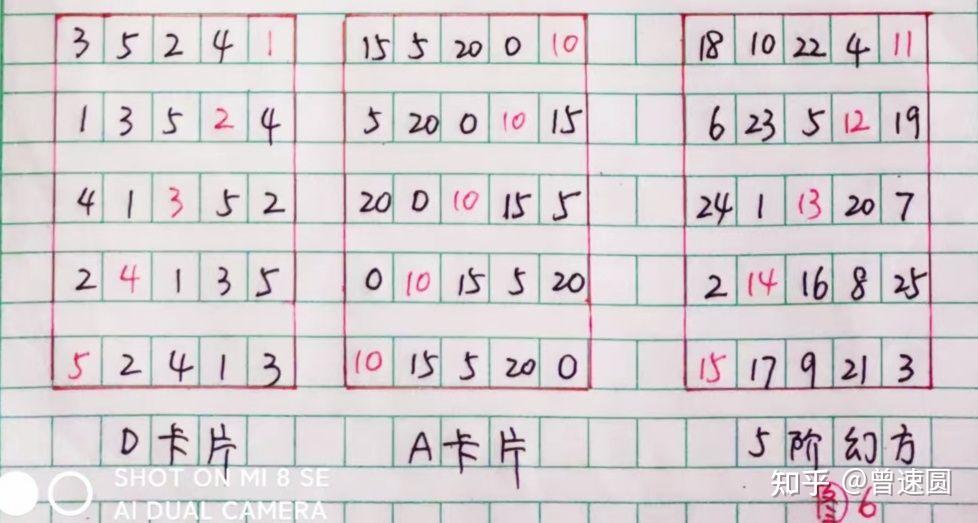 3 5 2 4 1 15 5 20 0 10 18 10 22 4 11
1 3 5 2 4 5 20 0 10 15 6 23 5 12 19
4 1 3 5 2 20 0 10 15 5 24 1 13 20 7
2 4 1 3 5 0 10 15 5 20 2 14 16 8 25
5 2 4 1 3 10 15 5 20 0 15 17 9 21 3
D卡片 A卡片 5阶幻方
SHOT ON MI 8 SE
AI DUAL CAMERA
知乎 @曾速圆
图6